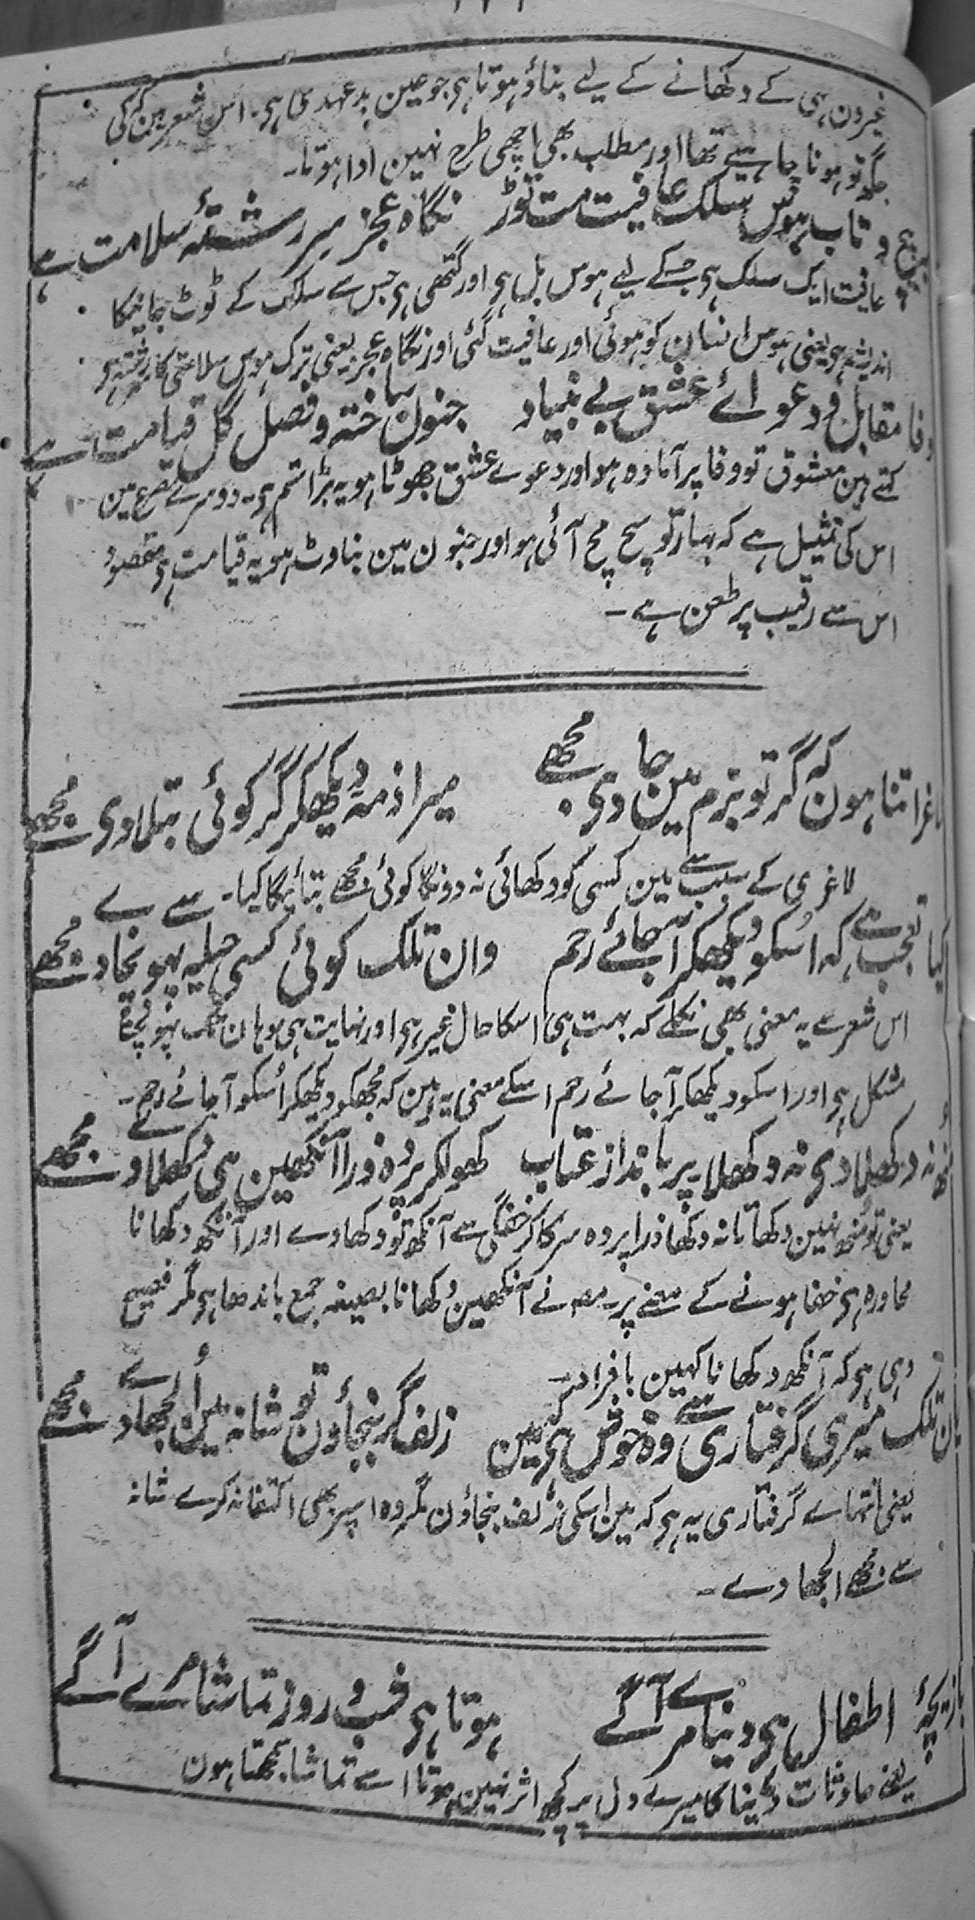 غیرون ہی کے دکھانے کے لیے بناؤ ہوتا ہی جو عین بدعہدی ہی۔ اس شعر مین کی
جگہ تو ہونا چاہیے تھا اور مطلب بھی اچھی طرح نہین ادا ہوتا۔
بہ پیچ و تاب ہوس سلک عافیت مت توڑ نگاہ عجز سر رشتۂ سلامت ہے
عافیت ایک سلک ہی جسکے لیے ہوس بل ہی اور گتھی ہی جس سے سلک کے ٹوٹ جانیکا
اندیشہ ہی یعنی ہوس انسان کو ہوئی اور عافیت گئی اور نگاہ عجز یعنی ترک ہوس سلامتی کا رشتہ ہی
وفا مقابل و دعوائے عشق بے بنیاد جنون ساختہ و فصل گل قیامت ہے
کہتے ہین معشوق تو وفا پر آمادہ ہو اور دعوے عشق جھوٹا ہو یہ بڑا ستم ہی۔ دوسرے مصرع مین
اس کی تمثیل ہے کہ بہار تو سچ مچ آئی ہو اور جنون مین بناوٹ ہو یہ قیامت ہی مقصود
اس سے رقیب پر طعن ہے۔
لاغر اتنا ہون کہ گر تو بزم مین جا دی مجھے میرا ذمہ دیکھکر گر کوئی بتلا دی مجھے
لاغری کے سبب سے مین کسی کو دکھائی نہ دونگا کوئی مجھے بتائیگا کیا۔
کیا تعجب ہے کہ اسکو دیکھکر آجائے رحم وان تلک کوئی کسی حیلہ سے پہونچا دے مجھے
اس شعر سے یہ معنی بھی نکلے کہ بہت ہی اسکا حال غیر ہی اور نہایت ہی وہان تک پہونچنا
مشکل ہی اور اسکو دیکھکر آجائے رحم اسکے معنی یہ ہین کہ مجھکو دیکھکر اُسکو آجائے رحم۔
مُنھ نہ دکھلا دی نہ دکھلا پر بانداز عتاب کھولکر پردہ ذرا آنکھین ہی دکھلا دے مجھے
یعنی تو مُنھ نہین دکھاتا نہ دکھا ذرا پردہ سرکا کر خفگی سے آنکھ تو دکھا دے اور آنکھ دکھانا
محاورہ ہی خفا ہونے کے معنے پر۔ مصنف نے آنکھین دکھانا بصیغہ جمع باندھا ہی مگر فصیح
وہی ہی کہ آنکھ دکھانا کہین بافراد۔
یان تلک میری گرفتاری سے وہ خوش ہی کہ مین زلف گر بنجاؤن تو شانہ مین اُلجھا دے مجھے
یعنی انتہاے گرفتاری یہ ہی کہ مین اسکی زلف بنجاؤن مگر وہ اسپر بھی اکتفا نہ کرے شانہ
سے مجھے الجھا دے۔
بازیچۂ اطفال ہی دنیا مرے آگے ہوتا ہی شب و روز تماشا مرے آگے
یعنے حادثات دنیا کا میرے دل پر کچھ اثر نہین ہوتا اسے تماشا سمجھتا ہون